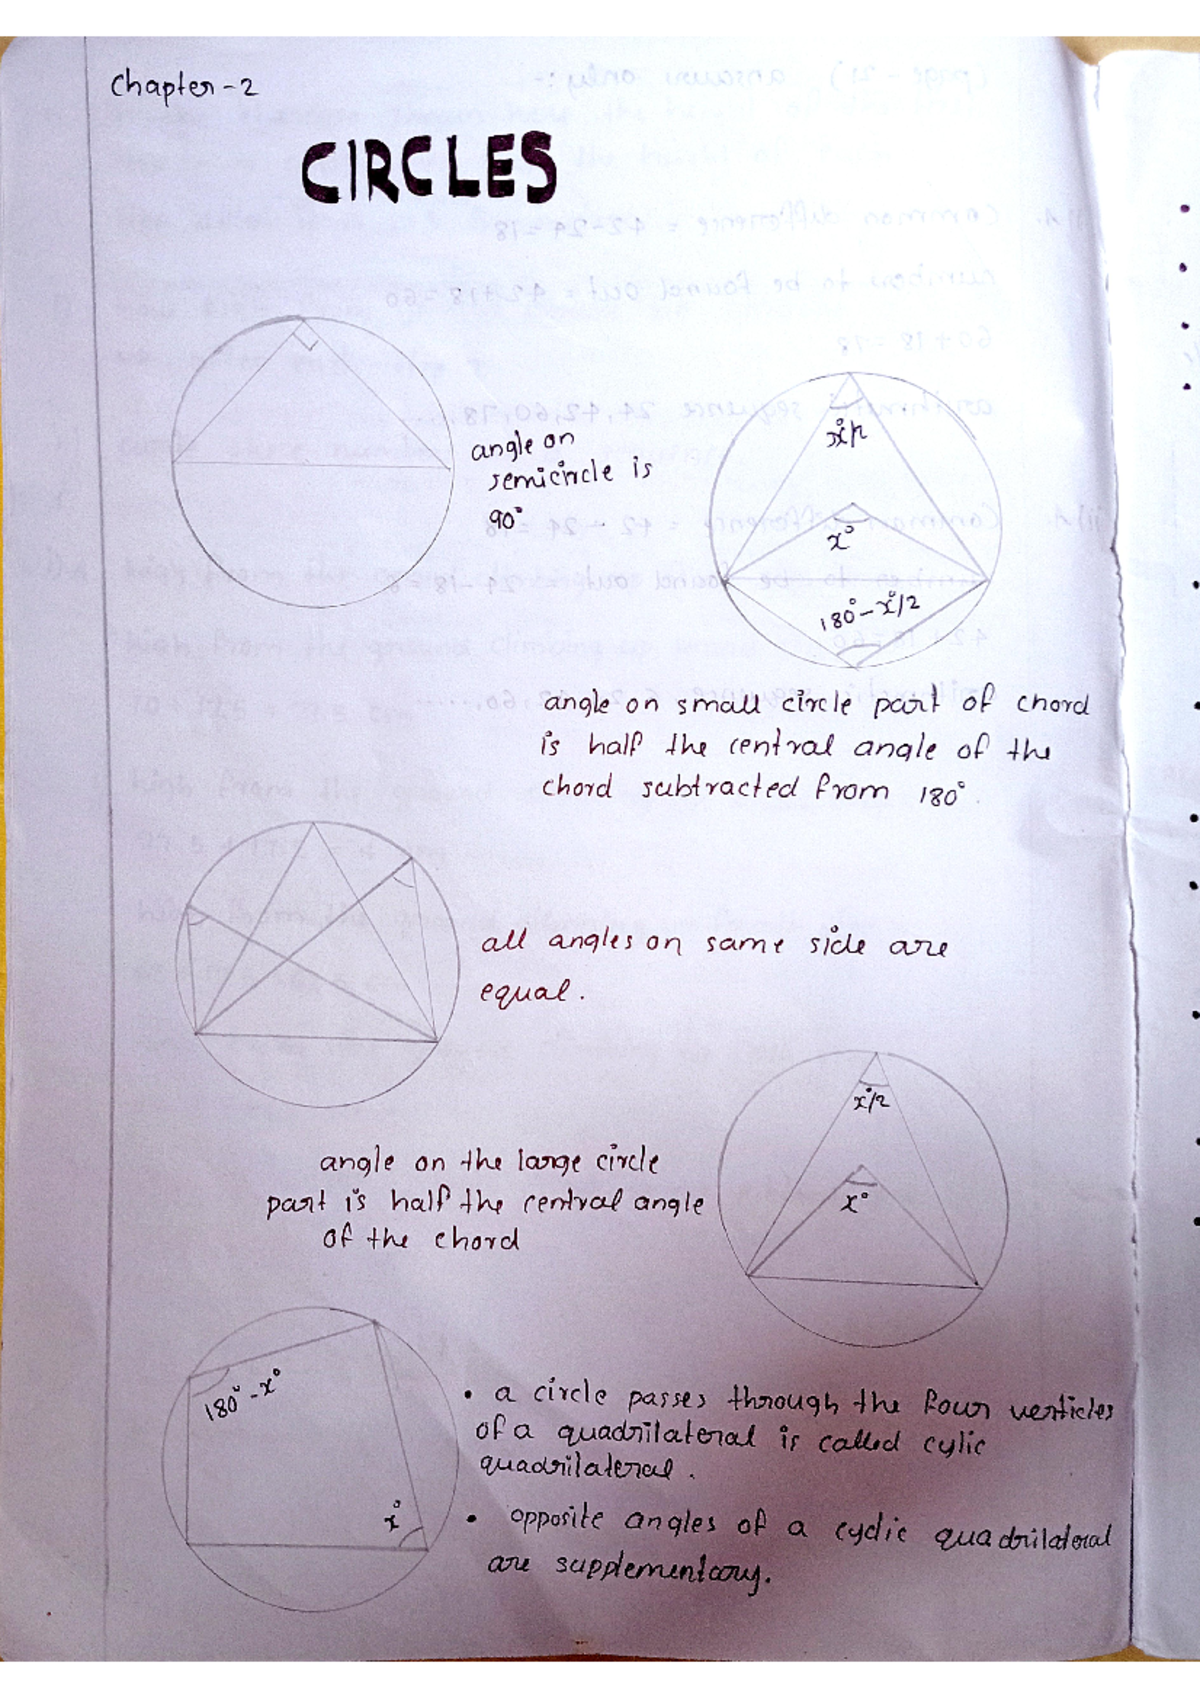 Chapter - 2
CIRCLES
angle on
semicircle is
90°
x°/2
x°
180° - x°/2
angle on small circle part of chord
is half the central angle of the
chord subtracted from 180°.
all angles on same side are
equal.
x°/2
x°
angle on the large circle
part is half the central angle
of the chord
180° - x°
x°
• a circle passes through the four verticles
of a quadrilateral is called cylic
quadrilateral.
• opposite angles of a cyclic quadrilateral
are supplementary.